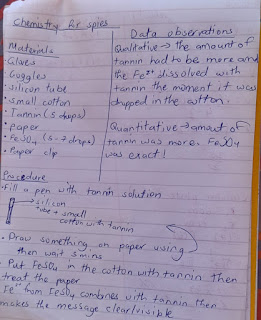 Chemistry for spies
Materials
• Gloves
• Goggles
• silicon tube
• small cotton
• Tannin (5 drops)
• paper
• FeSO4 (5-7 drops)
• Paper clip
Data observations
Qualitative → the amount of
tannin had to be more and
the Fe²⁺ dissolved with
tannin the moment it was
dropped in the cotton.
Quantitative → amount of
tannin was more. FeSO4
was exact!
Procedure
• Fill a pen with tannin solution
→ silicon
tube + small
cotton with tannin
• Draw something on paper using
then wait 5 mins
• Put FeSO4 in the cotton with tannin then
treat the paper
Fe²⁺ from FeSO4 combines with tannin then
makes the message clear/visible